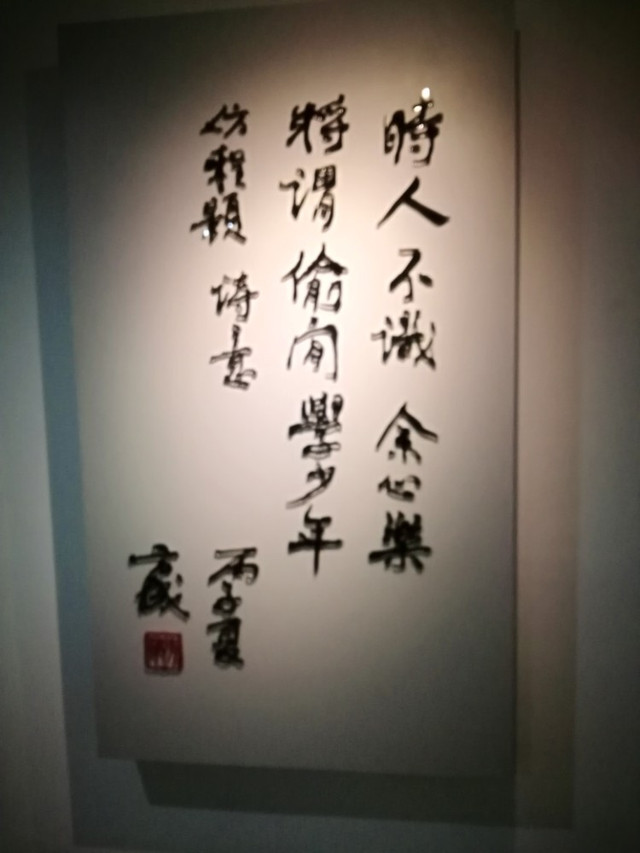 時人不識余心樂
將謂偷閒學少年
仿程顥詩意
丙子夏
方成